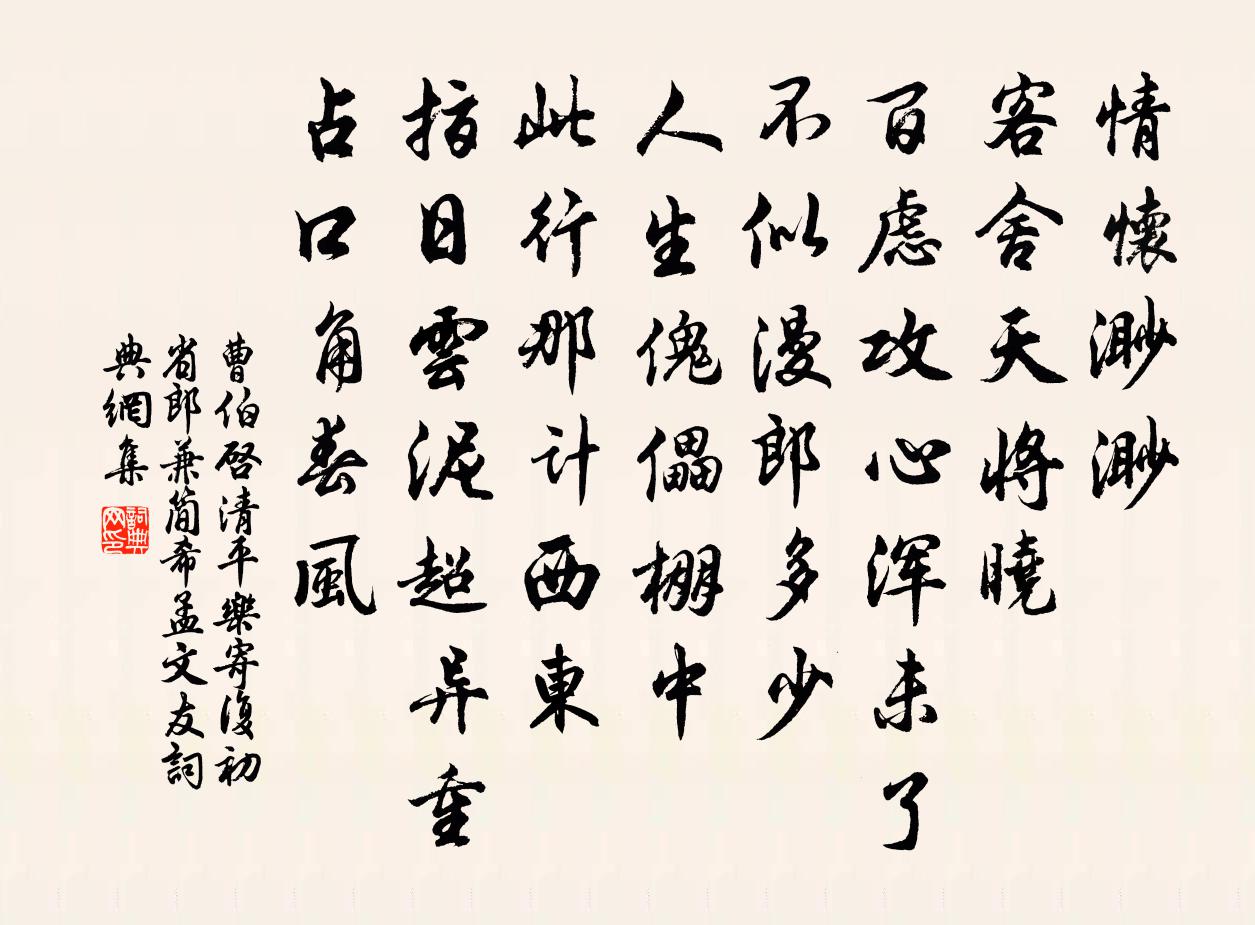 情懷渺渺
客舍天將曉
百慮攻心浑未了
不似漫郎多少
人生傀儡棚中
此行那计西東
指日雲泥超异重
占口角春風
曹伯啓清平樂寄復初
省郎兼簡希孟文友詞
典網集
詞典网印